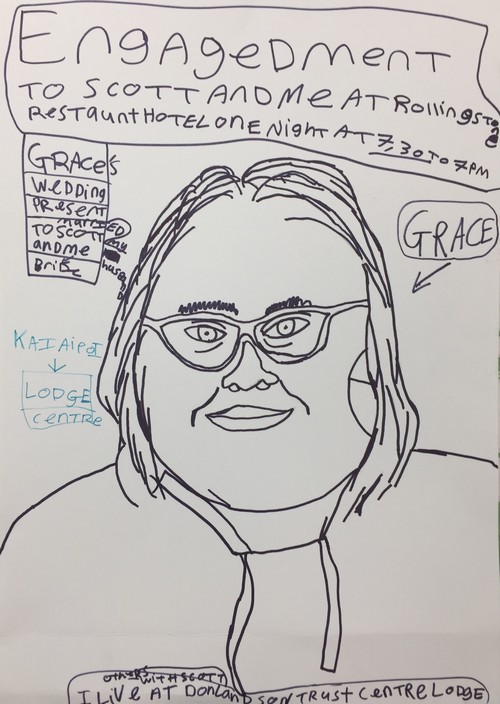 EngAgeDmenT
TO SCOTT AND Me AT Rollingstone
RESTAuntHOTELONE Night AT 7,30 TO 7PM
GRACE's
WeDDing
PResenT
mARRieD
TO SCOTT my
andme husband
BriDe
GRACE
KAIAiPOI
LODGE
CenTRe
OTHeRS WiTH SCOTT
I LiVe AT DonLandSon TRUST CenTRe LODGE